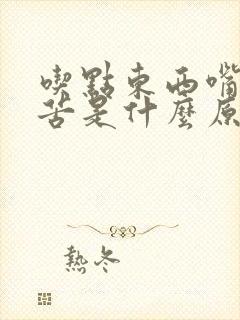 喫點東西嘴
苦是什麼原
熱冬